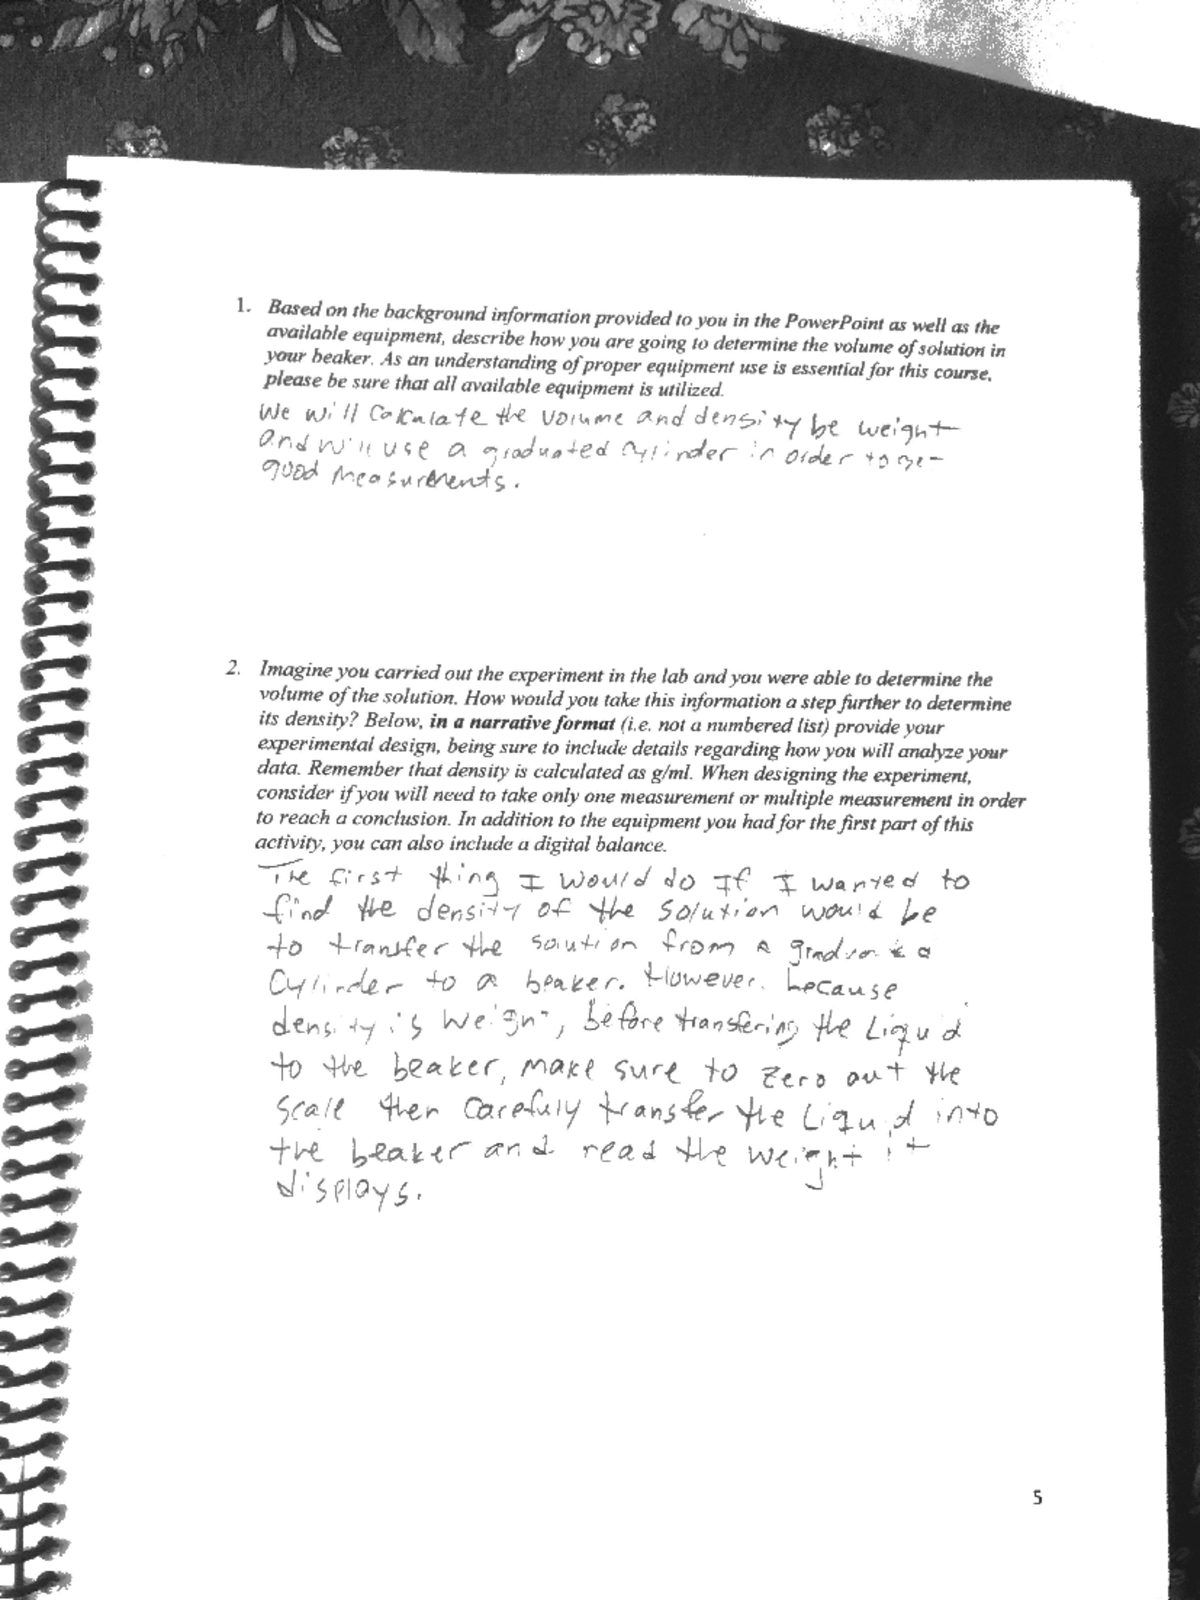 1. Based on the background information provided to you in the PowerPoint as well as the
available equipment, describe how you are going to determine the volume of solution in
your beaker. As an understanding of proper equipment use is essential for this course,
please be sure that all available equipment is utilized.
We will Calculate the volume and density be weight
and will use a graduated Cylinder in order to
good Measurements.
2. Imagine you carried out the experiment in the lab and you were able to determine the
volume of the solution. How would you take this information a step further to determine
its density? Below, in a narrative format (i.e. not a numbered list) provide your
experimental design, being sure to include details regarding how you will analyze your
data. Remember that density is calculated as g/ml. When designing the experiment,
consider if you will need to take only one measurement or multiple measurement in order
to reach a conclusion. In addition to the equipment you had for the first part of this
activity, you can also include a digital balance.
The first thing I would do If I wanted to
find the density of the solution would be
to transfer the solution from a
Cylinder to a beaker. However. because
density is weight, before transfering the Liquid
to the beaker, make sure to zero out the
scale then Carefuly transfer the Liquid into
the beaker and read the weight it
displays.
5